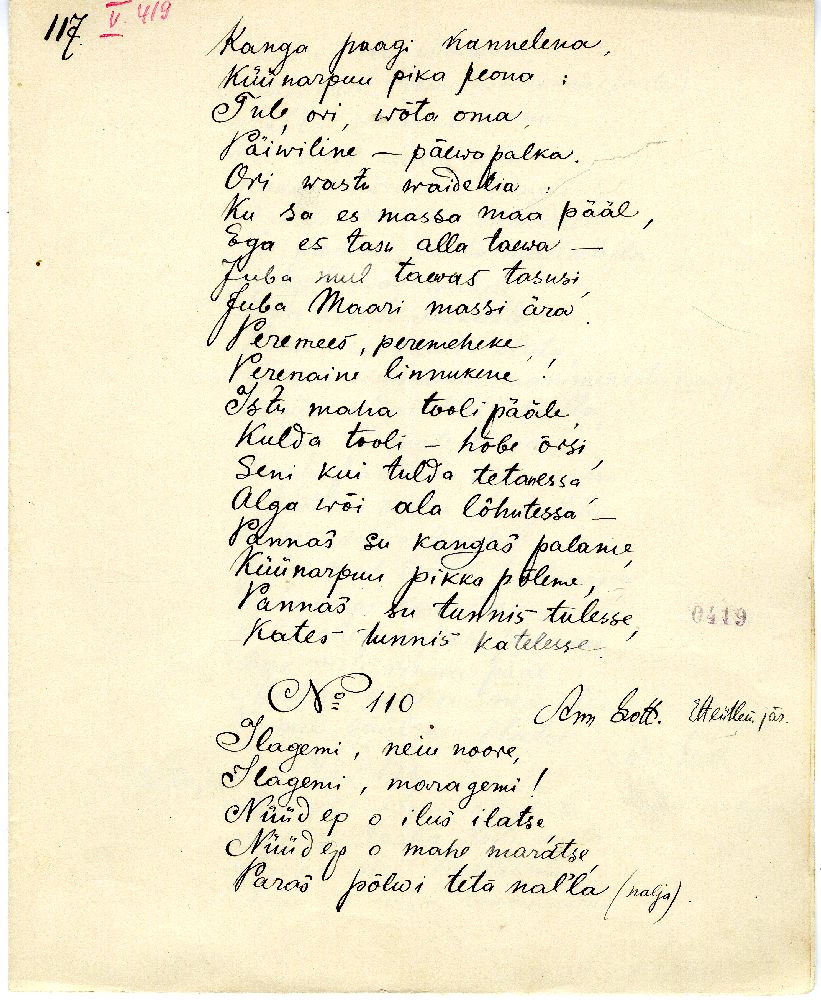 117. V. 419
Kanga paagi kannelena,
Küünarpuu pika peona :
Tule, ori, wõta oma,
Päiwiline – päewapalka.
Ori wastu waidellia :
Ku sa es massa maa pääl,
Ega es tasu alla taewa –
Juba mul taewas tasusi,
Juba Maari massi ära.
Peremees, peremeheke,
Perenaine linnukene !
Istu maha tooli pääle,
Kulda tooli – hõbe õrsi,
Seni kui tulda tetaessa,
Alga wõi ala lõhutessa –
Pannas su kangas palame,
Küünarpuu pikka põleme,
Pannas su tunnis tulesse,
Kates tunnis katelesse.
0419
No 110
Ann
Ilagemi, neiu noore,
Ilagemi, maragemi !
Nüüd ep o ilus ilatse,
Nüüd ep o mahe maratse,
Paras põlwi tetä nal'la (nalja).